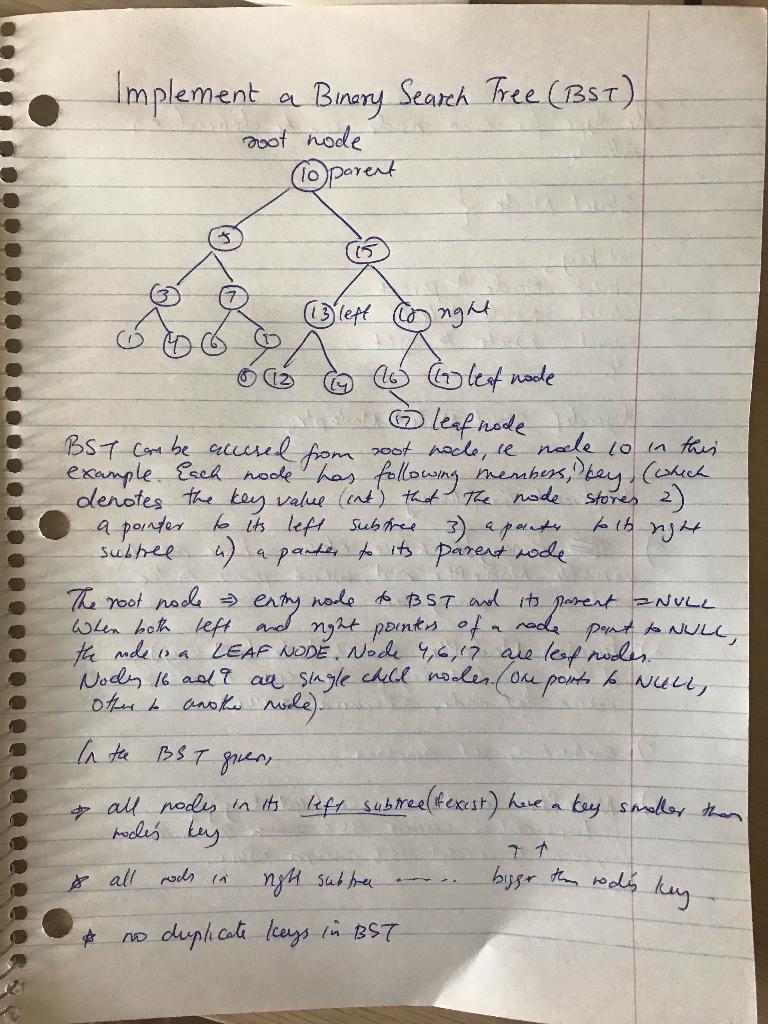 Implement a Binary Search Tree (BST)
root node
10 parent
5 15
3 7 13 left 18 right
1 4 6 9
8 12 14 16 19 leaf node
17 leaf node
BST can be accused from root node, ie node 10 in this
example. Each node has following members, 1) key, (which
denotes the key value (int) that the node stores 2)
a pointer to its left subtree 3) a pointer to its right
subtree 4) a pointer to its parent node
The root node ⇒ entry node to BST and its parent = NULL
When both left and right pointers of a node point to NULL,
the node is a LEAF NODE. Node 4, 6, 17 are leaf nodes.
Nodes 16 and 9 are single child nodes. (One points to NULL,
other to another node).
In the BST given,
* all nodes in its left subtree (if exist) have a key smaller than
node's key
↑ ↑
* all nodes in right subtree ------ bigger than node's key
* no duplicate keys in BST